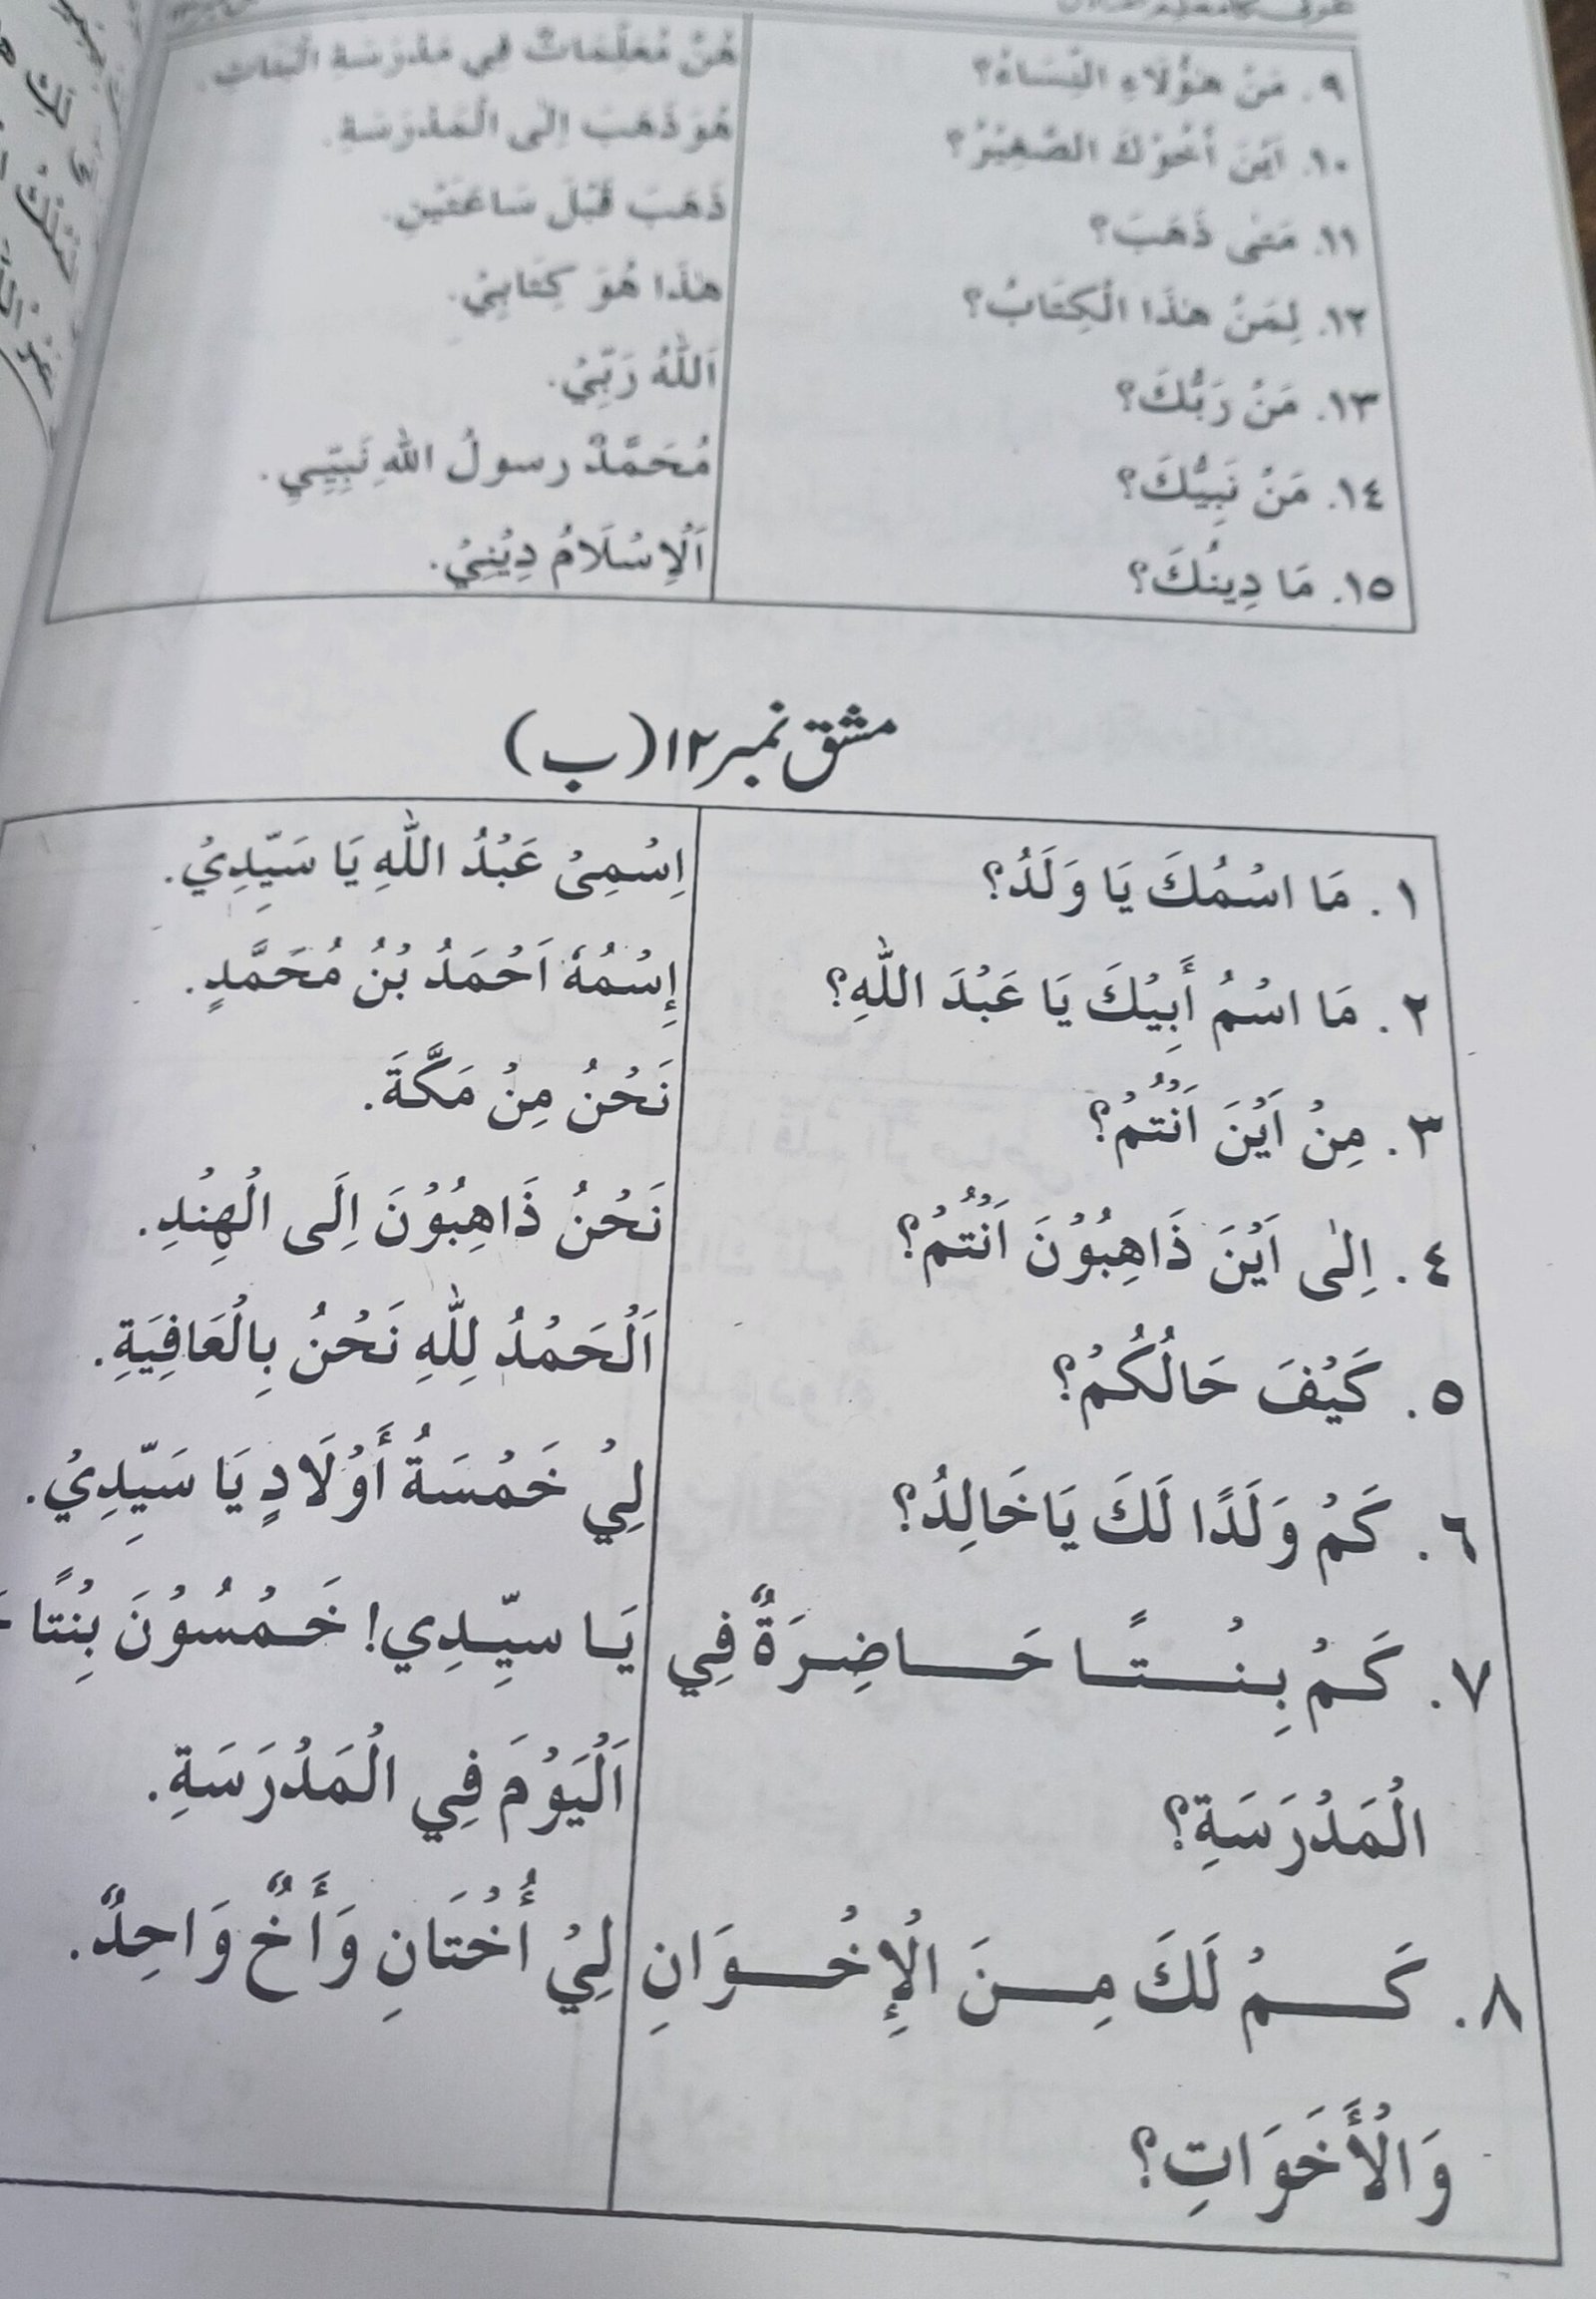 ٩. مَنْ هٰؤُلَاءِ النِّسَاءُ؟ هُنَّ مُعَلِّمَاتٌ فِي مَدْرَسَةِ الْبَنَاتِ.
١٠. اَيْنَ أَخُوْكَ الصَّغِيْرُ؟ هُوَ ذَهَبَ اِلٰى الْمَدْرَسَةِ.
١١. مَتٰى ذَهَبَ؟ ذَهَبَ قَبْلَ سَاعَتَيْنِ.
١٢. لِمَنْ هٰذَا الْكِتَابُ؟ هٰذَا هُوَ كِتَابِيْ.
١٣. مَنْ رَبُّكَ؟ اَللّٰهُ رَبِّيْ.
١٤. مَنْ نَبِيُّكَ؟ مُحَمَّدٌ رسولُ اللّٰهِ نَبِيِّي.
١٥. مَا دِينُكَ؟ اَلْاِسْلَامُ دِيْنِيْ.
مشق نمبر ١٢ (ب)
١. مَا اسْمُكَ يَا وَلَدُ؟ اِسْمِىْ عَبْدُ اللّٰهِ يَا سَيِّدِيْ.
٢. مَا اسْمُ أَبِيْكَ يَا عَبْدَ اللّٰهِ؟ إِسْمُهٗ اَحْمَدُ بْنُ مُحَمَّدٍ.
٣. مِنْ اَيْنَ اَنْتُمْ؟ نَحْنُ مِنْ مَكَّةَ.
٤. اِلٰى اَيْنَ ذَاهِبُوْنَ اَنْتُمْ؟ نَحْنُ ذَاهِبُوْنَ اِلَى الْهِنْدِ.
٥. كَيْفَ حَالُكُمْ؟ اَلْحَمْدُ لِلّٰهِ نَحْنُ بِالْعَافِيَةِ.
٦. كَمْ وَلَدًا لَكَ يَا خَالِدُ؟ لِيْ خَمْسَةُ أَوْلَادٍ يَا سَيِّدِيْ.
٧. كَمْ بِنْتًا حَاضِرَةٌ فِي يَا سيِّدِي! خَمْسُوْنَ بِنْتًا
الْمَدْرَسَةِ؟ اَلْيَوْمَ فِي الْمَدْرَسَةِ.
٨. كَمْ لَكَ مِنَ الْإِخْوَانِ لِيْ أُخْتَانِ وَأَخٌ وَاحِدٌ.
وَالْأَخَوَاتِ؟